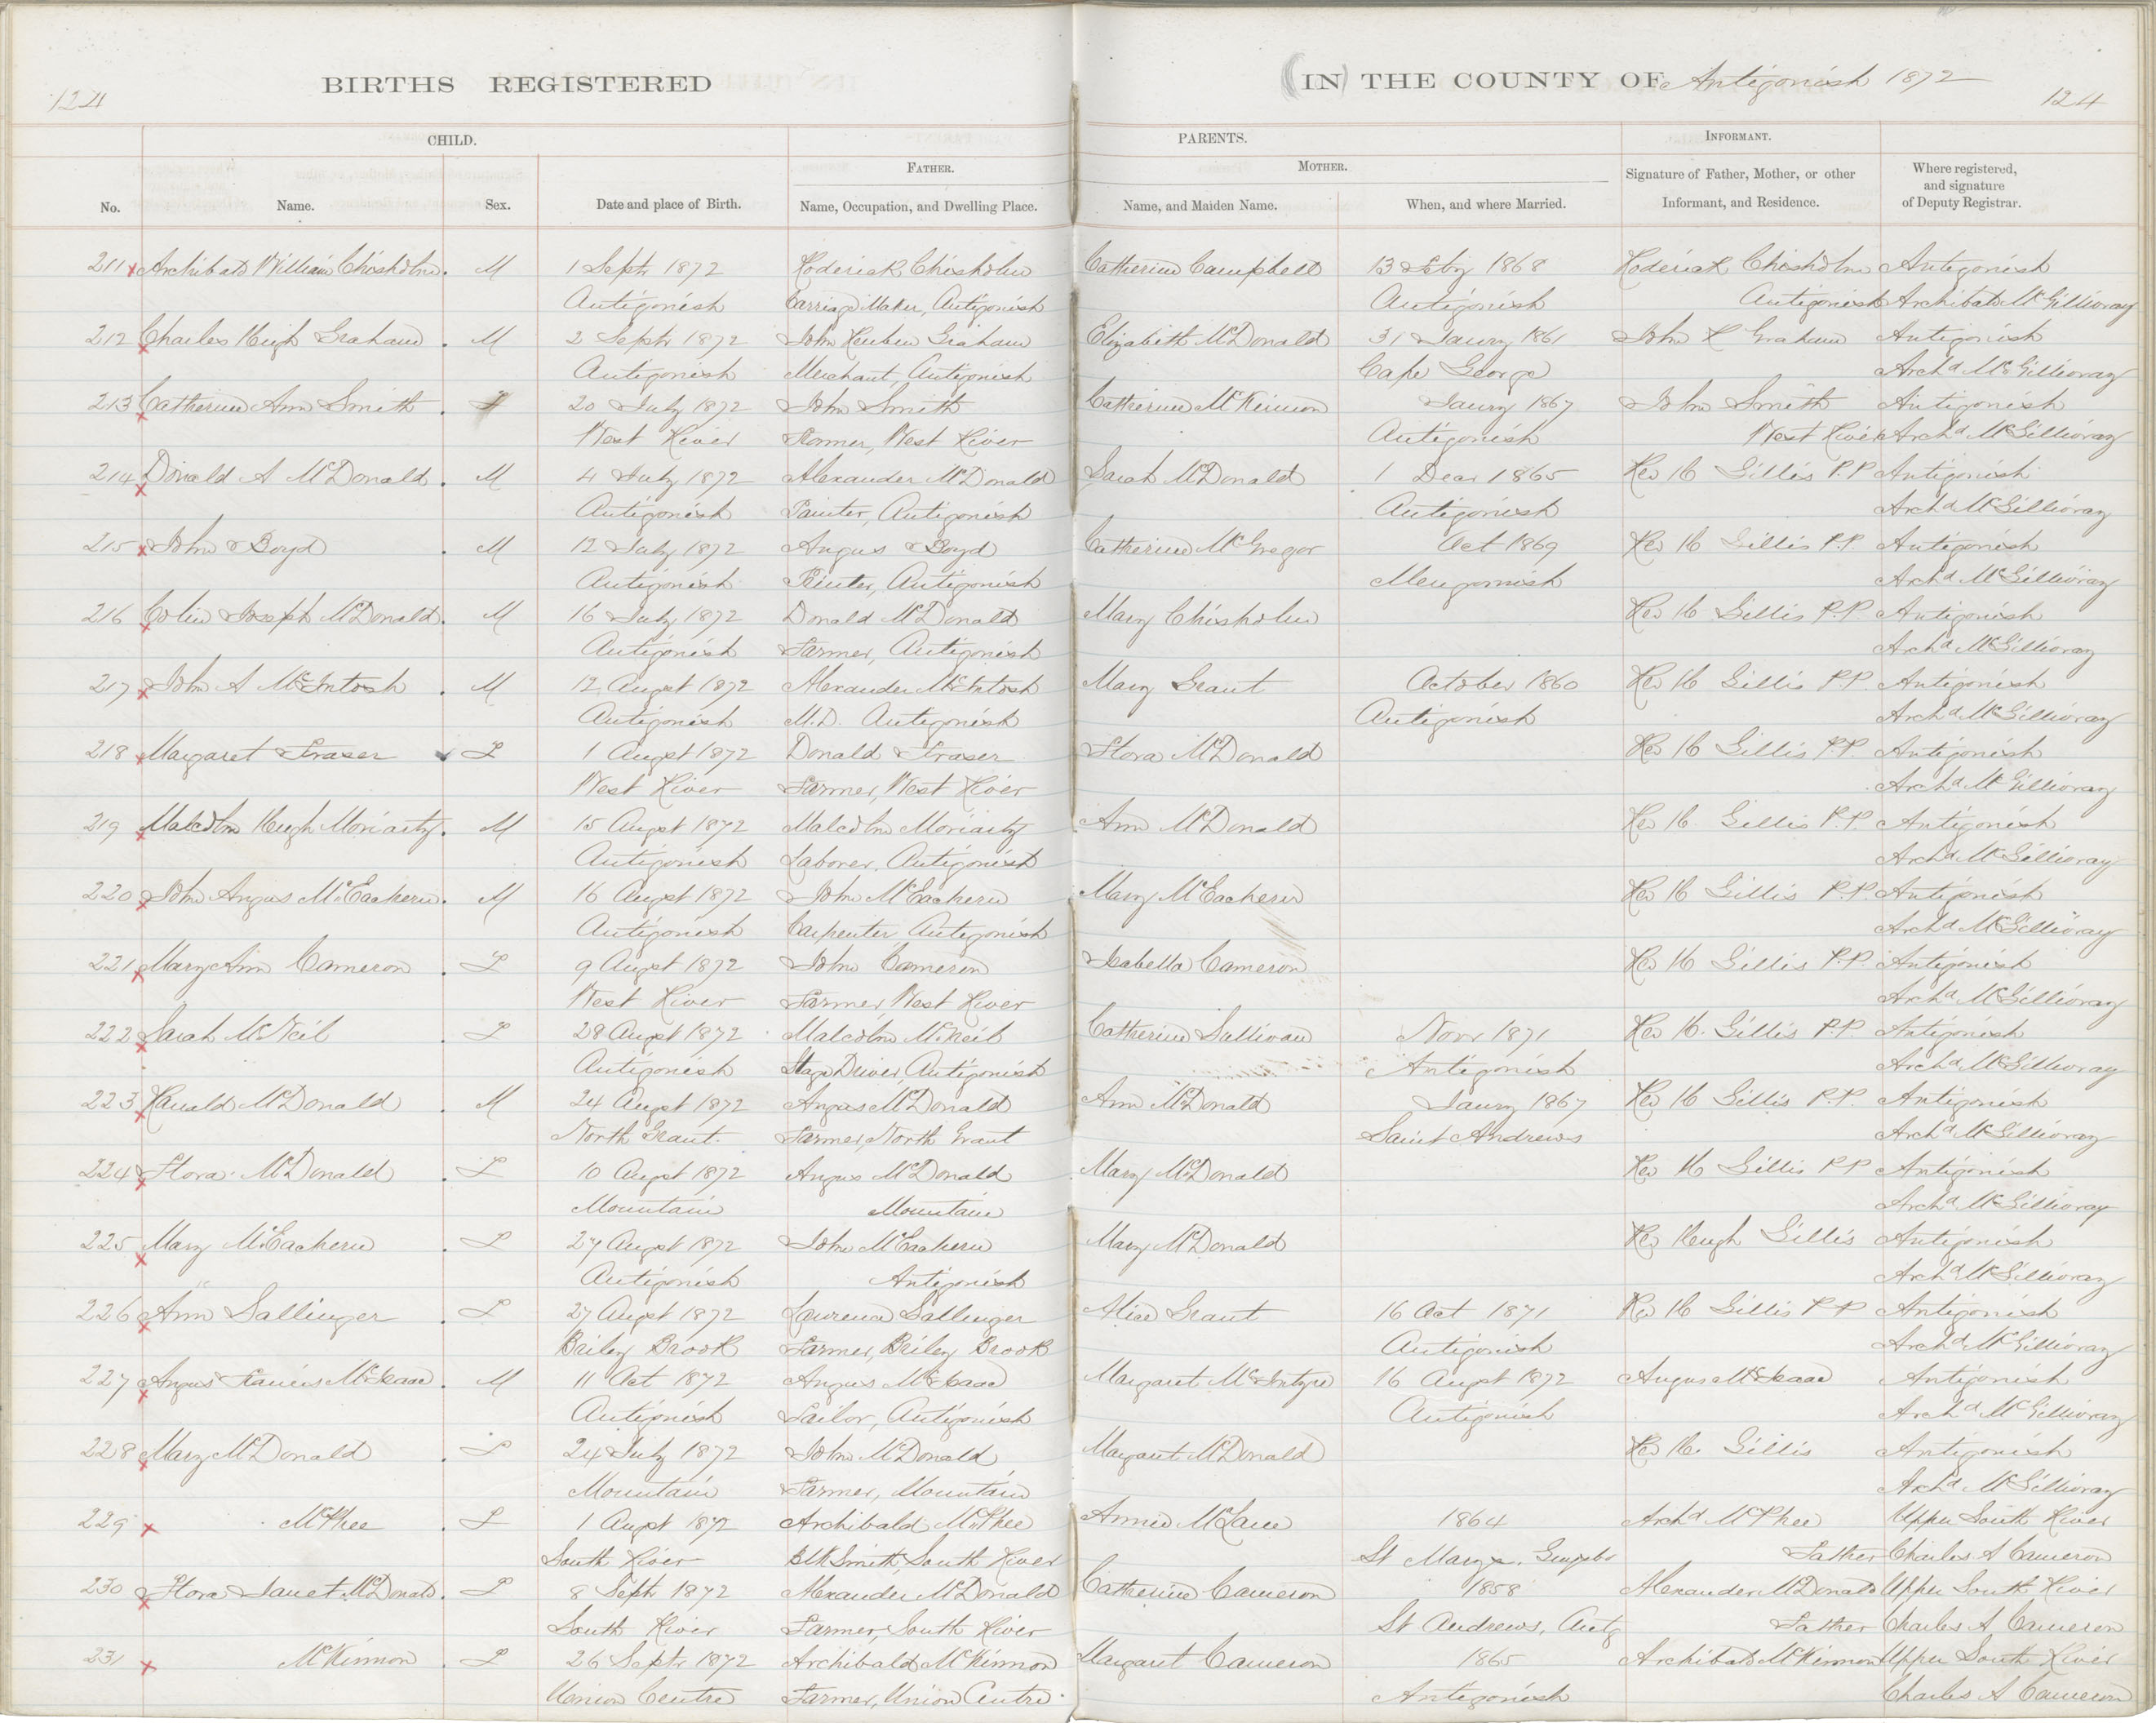 124
BIRTHS REGISTERED
(IN) THE COUNTY OF Antigonish 1872
124
CHILD.
PARENTS.
INFORMANT.
FATHER.
MOTHER.
No. Name. Sex. Date and place of Birth. Name, Occupation, and Dwelling Place. Name, and Maiden Name. When, and where Married. Signature of Father, Mother, or other Informant, and Residence. Where registered, and signature of Deputy Registrar.
211 x Archibald William Chisholm . M 1 Septr 1872 Roderick Chisholm Catherine Campbell 13 Feby 1868 Roderick Chisholm Antigonish
Antigonish Carriage Maker, Antigonish Antigonish Antigonish Archibald McGillivray
212 x Charles Hugh Graham . M 2 Septr 1872 John Reuben Graham Elizabeth McDonald 31 Jany 1861 John R Graham Antigonish
Antigonish Merchant, Antigonish Cape George Archd McGillivray
213 x Catherine Ann Smith . F 20 July 1872 John Smith Catherine McKinnon Jany 1867 John Smith Antigonish
West River Farmer, West River Antigonish West River Archd McGillivray
214 x Donald A McDonald . M 4 July 1872 Alexander McDonald Sarah McDonald 1 Decr 1865 Rev H Gillis P.P Antigonish
Antigonish Painter, Antigonish Antigonish Archd McGillivray
215 x John Boyd . M 12 July 1872 Angus Boyd Catherine McGregor Oct 1869 Rev H Gillis P.P. Antigonish
Antigonish Printer, Antigonish Merigomish Archd McGillivray
216 x Colin Joseph McDonald . M 16 July 1872 Donald McDonald Mary Chisholm Rev H Gillis P.P. Antigonish
Antigonish Farmer, Antigonish Archd McGillivray
217 x John A McIntosh . M 12 Augst 1872 Alexander McIntosh Mary Grant October 1860 Rev H Gillis P.P. Antigonish
Antigonish M.D. Antigonish Antigonish Archd McGillivray
218 x Margaret Fraser F 1 Augst 1872 Donald Fraser Flora McDonald Rev H Gillis P.P. Antigonish
West River Farmer, West River Archd McGillivray
219 x Malcolm Hugh Moriarty . M 15 Augst 1872 Malcolm Moriarty Ann McDonald Rev H. Gillis P.P. Antigonish
Antigonish Laborer, Antigonish Archd McGillivray
220 x John Angus McEachern . M 16 Augst 1872 John McEachern Mary McEachern Rev H Gillis P.P. Antigonish
Antigonish Carpenter, Antigonish Archd McGillivray
221 x Mary Ann Cameron . F 9 Augst 1872 John Cameron Isabella Cameron Rev H Gillis P.P. Antigonish
West River Farmer, West River Archd McGillivray
222 x Sarah McNeil . F 28 Augst 1872 Malcolm McNeil Catherine Sullivan Novr 1871 Rev H. Gillis P.P. Antigonish
Antigonish Stage Driver, Antigonish Antigonish Archd McGillivray
223 x Ranald McDonald . M 24 Augst 1872 Angus McDonald Ann McDonald Jany 1867 Rev H Gillis P.P. Antigonish
North Grant. Farmer, North Grant Saint Andrews Archd McGillivray
224 x Flora McDonald . F 10 Augst 1872 Angus McDonald Mary McDonald Rev H Gillis P.P Antigonish
Mountain Mountain Archd McGillivray
225 x Mary McEachern . F 27 Augst 1872 John McEachern Mary McDonald Rev Hugh Gillis Antigonish
Antigonish Antigonish Archd McGillivray
226 x Ann Sallinger . F 27 Augst 1872 Lawrence Sallinger Alice Grant 16 Oct 1871 Rev H Gillis P.P Antigonish
Briley Brook Farmer, Briley Brook Antigonish Archd McGillivray
227 x Angus Francis McIsaac . M 11 Oct 1872 Angus McIsaac Margaret McIntyre 16 Augst 1872 Angus McIsaac Antigonish
Antigonish Sailor, Antigonish Antigonish Archd McGillivray
228 x Mary McDonald . F 24 July 1872 John McDonald Margaret McDonald Rev H. Gillis Antigonish
Mountain Farmer, Mountain Archd McGillivray
229 x McPhee . F 1 Augst 1872 Archibald McPhee Annie McLane 1864 Archd McPhee Upper South River
South River BlkSmith, South River St Marys, Guysbo Father Charles A Cameron
230 x Flora Janet McDonald . F 8 Septr 1872 Alexander McDonald Catherine Cameron 1858 Alexander McDonald Upper South River
South River Farmer, South River St Andrews, Antg Father Charles A Cameron
231 x McKinnon . F 26 Septr 1872 Archibald McKinnon Margaret Cameron 1865 Archibald McKinnon Upper South River
Union Centre Farmer, Union Centre Antigonish Charles A Cameron